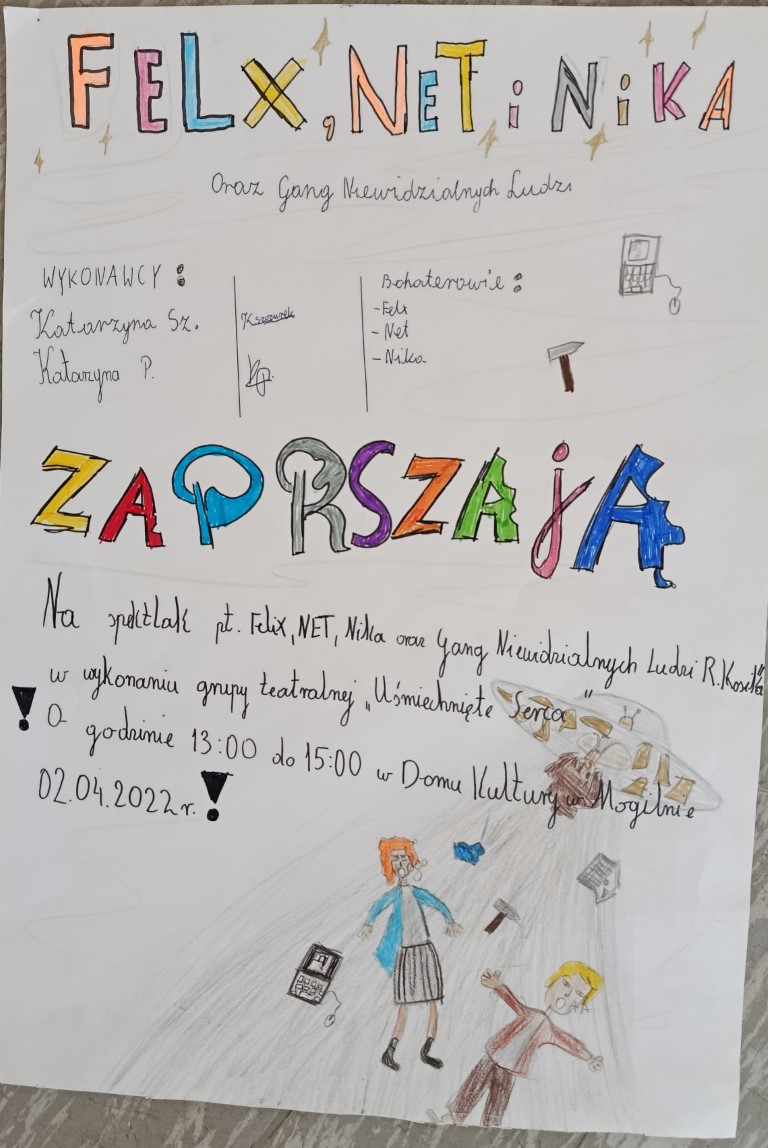 FELX, NET i NiKA
Oraz Gang Niewidzialnych Ludzi
WYKONAWCY :
Katarzyna Sz.
Katarzyna P.
Bohaterowie :
- Felx
- Net
- Nika
ZAPRSZAJĄ
Na spektlak pt. Felix, NET, Nika oraz Gang Niewidzialnych Ludzi R. Kosika
w wykonaniu grupy teatralnej „Uśmiechnięte Serca"
! O godzinie 13:00 do 15:00 w Domu Kultury w Mogilnie
02.04.2022 r. !